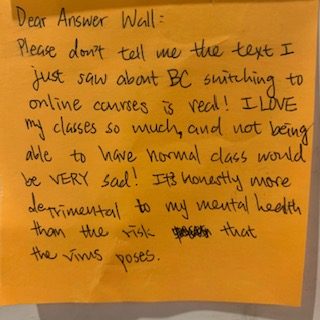 Dear Answer Wall:
Please don't tell me the text I
just saw about BC switching to
online courses is real! I LOVE
my classes so much, and not being
able to have normal class would
be VERY sad! It's honestly more
detrimental to my mental health
than the risk that
the virus poses.